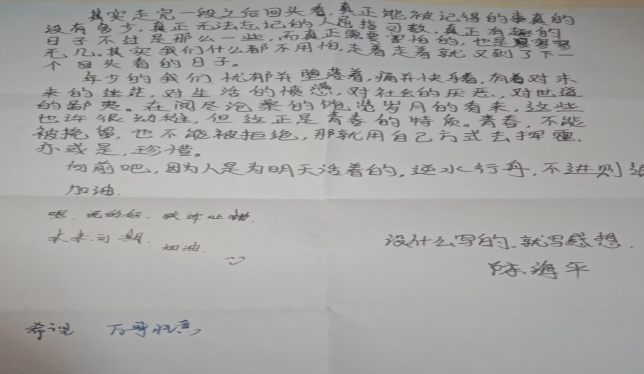 其实走完一段之后回头看,真正能被记得的事真的
没有多少,真正无法忘记的人屈指可数,真正有趣的
日子不过是那么一些,而真正需要害怕的,也是寥寥
无几。其实我们什么都不用怕,走着走着就又到了下一
个回头看的日子。
年少的我们忧郁并堕落着,痛并快乐着,有着对未
来的迷茫,对生活的憧憬,对社会的厌恶,对世道
的鄙夷。在阅尽沧桑的饱沾岁月的看来,这些
也许很幼稚,但这正是青春的特质。青春,不能
被挽留,也不能被拒绝,那就用自己方式去挥霍,
亦或是,珍惜。
向前吧,因为人是为明天活着的,逆水行舟,不进则退
加油.
嗯
未来可期.
加油.
没什么写的,就写感想.
陈海平
希望